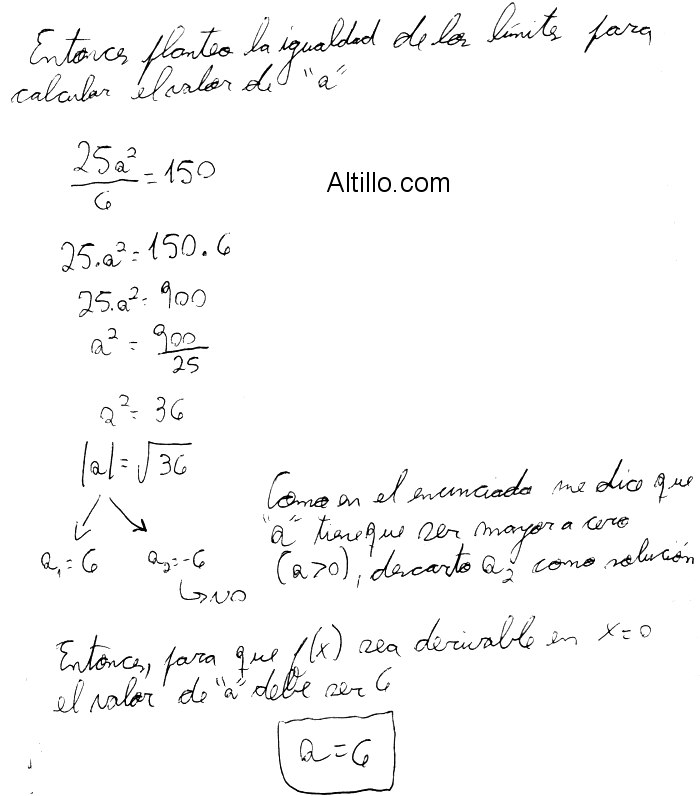 Entonces planteo la igualdad de los límites para
calcular el valor de "a"
25a²/6 = 150
Altillo.com
25.a² = 150.6
25.a² = 900
a² = 900/25
a² = 36
|a| = √36
Como en el enunciado me dice que
"a" tiene que ser mayor a cero
(a>0), descarto a₂ como solución
a₁ = 6 a₂ = -6
↳ NO
Entonces, para que f(x) sea derivable en x=0
el valor de "a" debe ser 6
a = 6